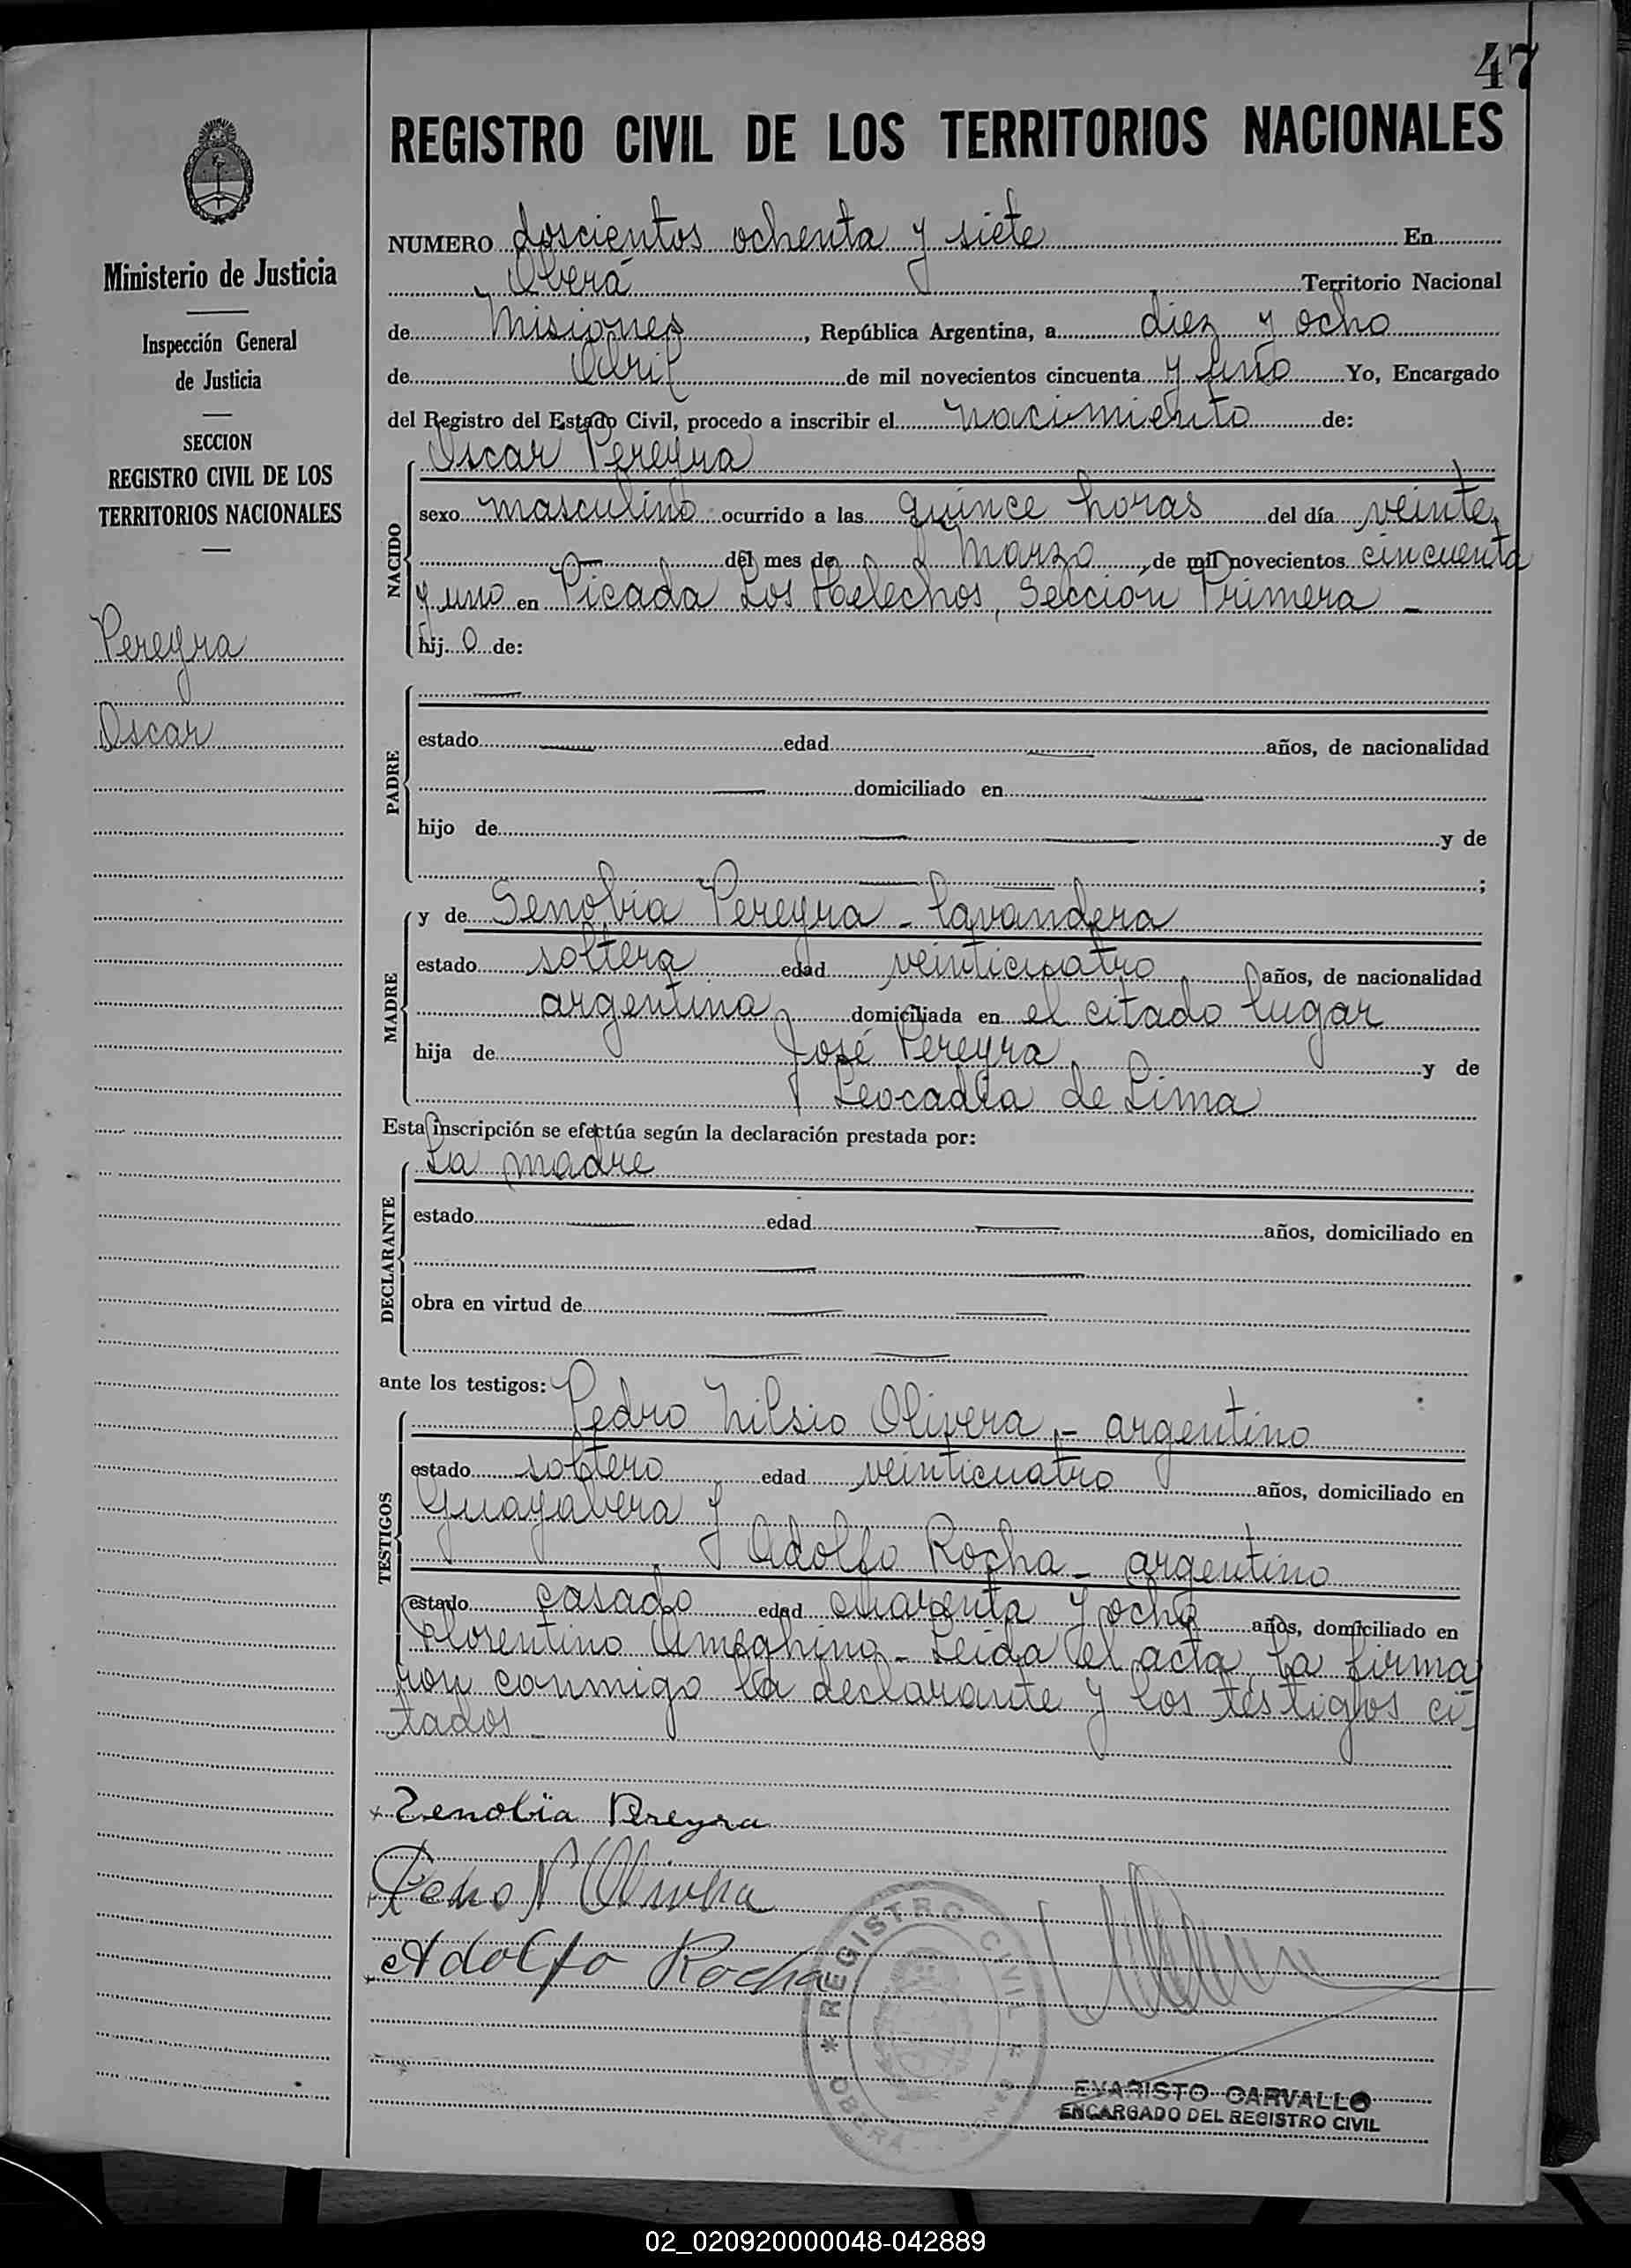 47
REGISTRO CIVIL DE LOS TERRITORIOS NACIONALES
Ministerio de Justicia
Inspección General
de Justicia
SECCION
REGISTRO CIVIL DE LOS
TERRITORIOS NACIONALES
Pereyra
Oscar
NUMERO doscientos ochenta y siete En
Oberá Territorio Nacional
de Misiones, República Argentina, a diez y ocho
de Abril de mil novecientos cincuenta y uno Yo, Encargado
del Registro del Estado Civil, procedo a inscribir el nacimiento de:
Oscar Pereyra
NACIDO
sexo masculino ocurrido a las quince horas del día veinte
del mes de Marzo, de mil novecientos cincuenta
y uno en Picada Los Helechos, Sección Primera -
hij o de:
PADRE
estado edad años, de nacionalidad
domiciliado en
hijo de y de
;
MADRE
y de Senobia Pereyra - lavandera
estado soltera edad veinticuatro años, de nacionalidad
argentina domiciliada en el citado lugar
hija de José Pereyra y de
Leocadia de Lima
Esta inscripción se efectúa según la declaración prestada por:
La madre
DECLARANTE
estado edad años, domiciliado en
obra en virtud de
ante los testigos:
TESTIGOS
Pedro Nilsio Olivera - argentino
estado soltero edad veinticuatro años, domiciliado en
Guayabera y
Adolfo Rocha - argentino
estado casado edad cuarenta y ocho años, domiciliado en
Florentino Ameghino - Leída el acta, la firma
ron conmigo la declarante y los testigos ci-
tados
Zenobia Pereyra
Pedro N Olivera
Adolfo Rocha
REGISTRO CIVIL
OBERA
EVARISTO CARVALLO
ENCARGADO DEL REGISTRO CIVIL
02_020920000048-042889